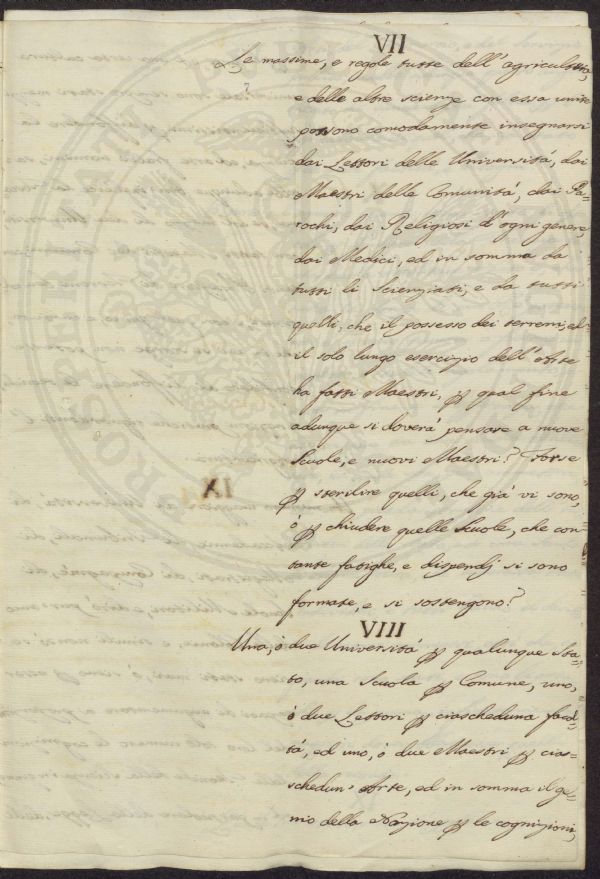 VII
Le massime, e regole tutte dell'agricultura,
e delle altre scienze con essa unite
possono comodamente insegnarsi
dai Lettori delle Università, dai
Maestri delle Comunità, dai Pa=
rochi, dai Religiosi d'ogni genere,
dai Medici, ed in somma da
tutti li Scienziati, e da tutti
quelli, che il possesso dei terreni, ed
il solo lungo esercizio dell'Arte
ha fatti Maestri, p qual fine
adunque si doverà pensare a nuove
Scuole, e nuovi Maestri? Forse
p sterilire quelli, che già vi sono,
ò p chiudere quelle Scuole, che con
tante fatighe, e dispendj si sono
formate, e si sostengono?
VIII
Una, ò due Università p qualunque Sta=
to, una Scuola p Comune, uno,
ò due Lettori p ciascheduna facol=
tà, ed uno, ò due Maestri p cias=
schedun' Arte, ed in somma il ge=
nio della Nazione p le cognizioni,
IX